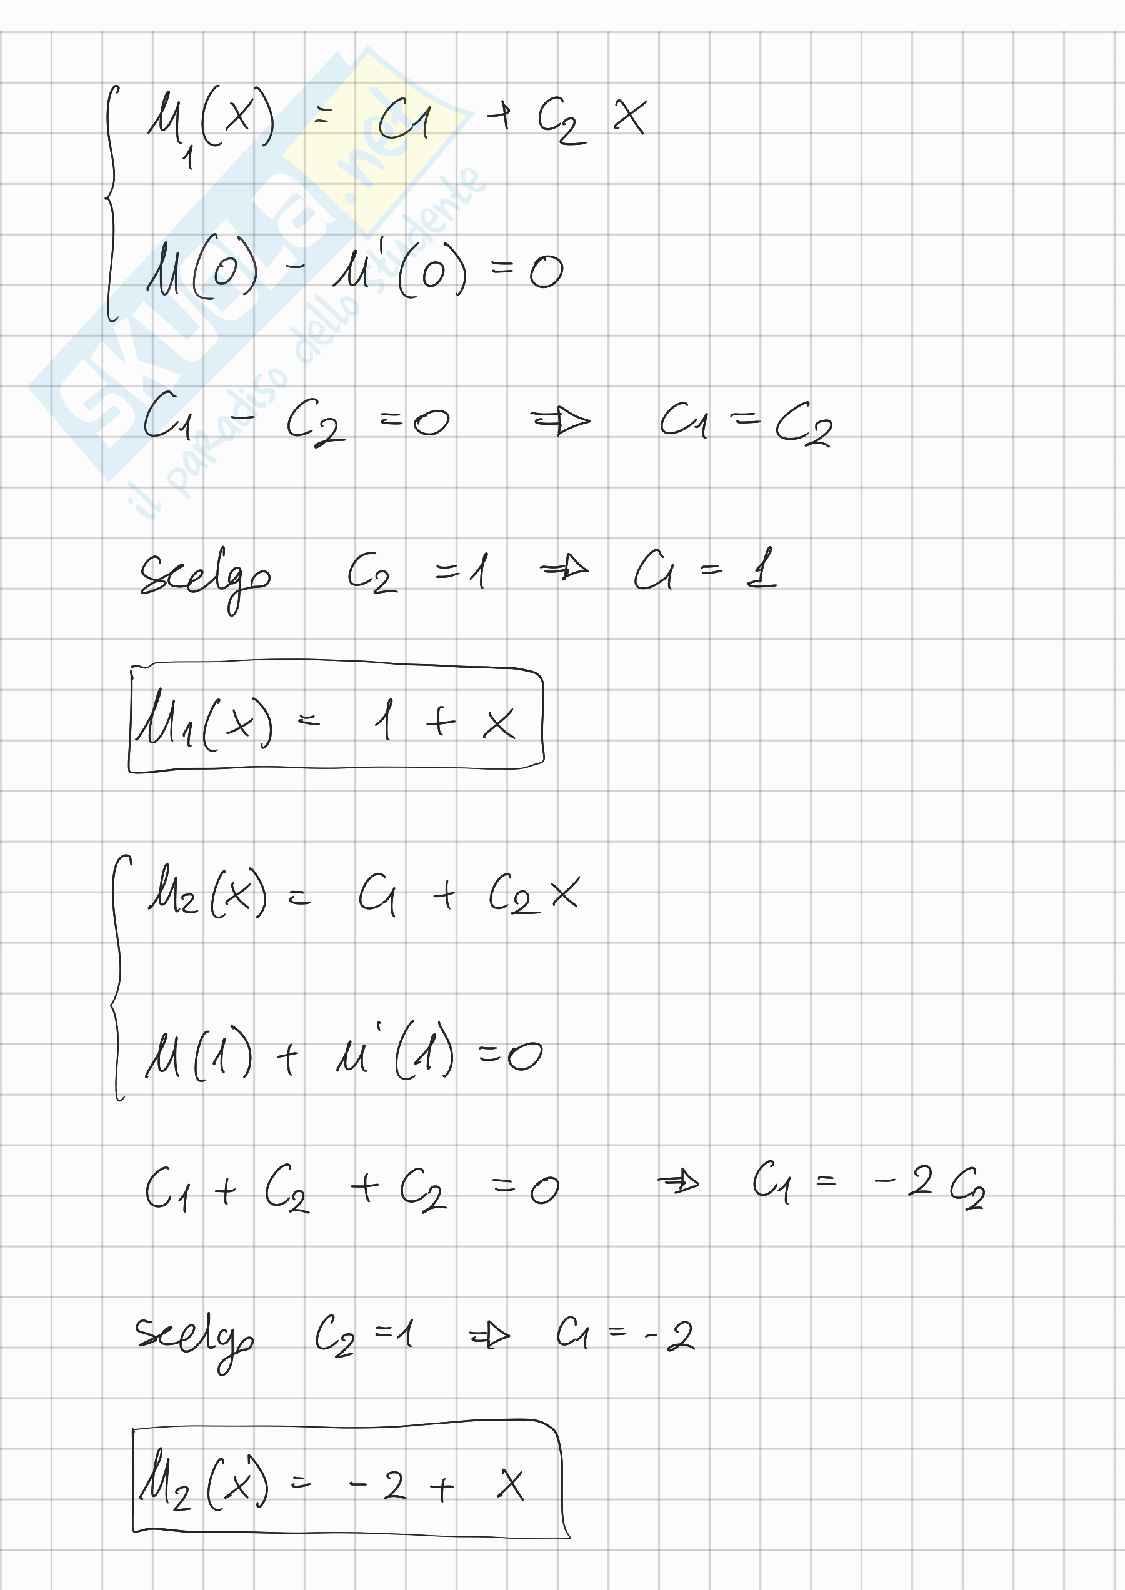 SKUOLA.net
il paradiso dello studente
μ₁(x) = C1 + C2 x
μ(0) - μ'(0) = 0
C1 - C2 = 0 ⇒ C1 = C2
scelgo C2 = 1 ⇒ C1 = 1
μ1(x) = 1 + x
μ2(x) = C1 + C2 x
μ(1) + μ'(1) = 0
C1 + C2 + C2 = 0 ⇒ C1 = -2 C2
scelgo C2 = 1 ⇒ C1 = -2
μ2(x) = -2 + x